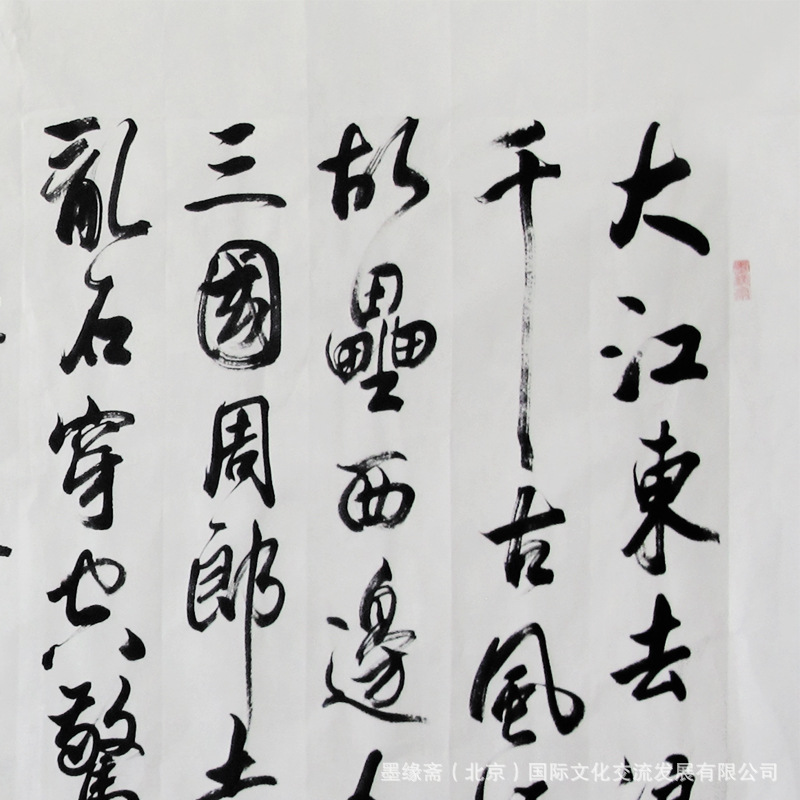 大江東去
千古風
故壘西邊
三國周郎
亂石穿空驚
墨缘斋（北京）国际文化交流发展有限公司